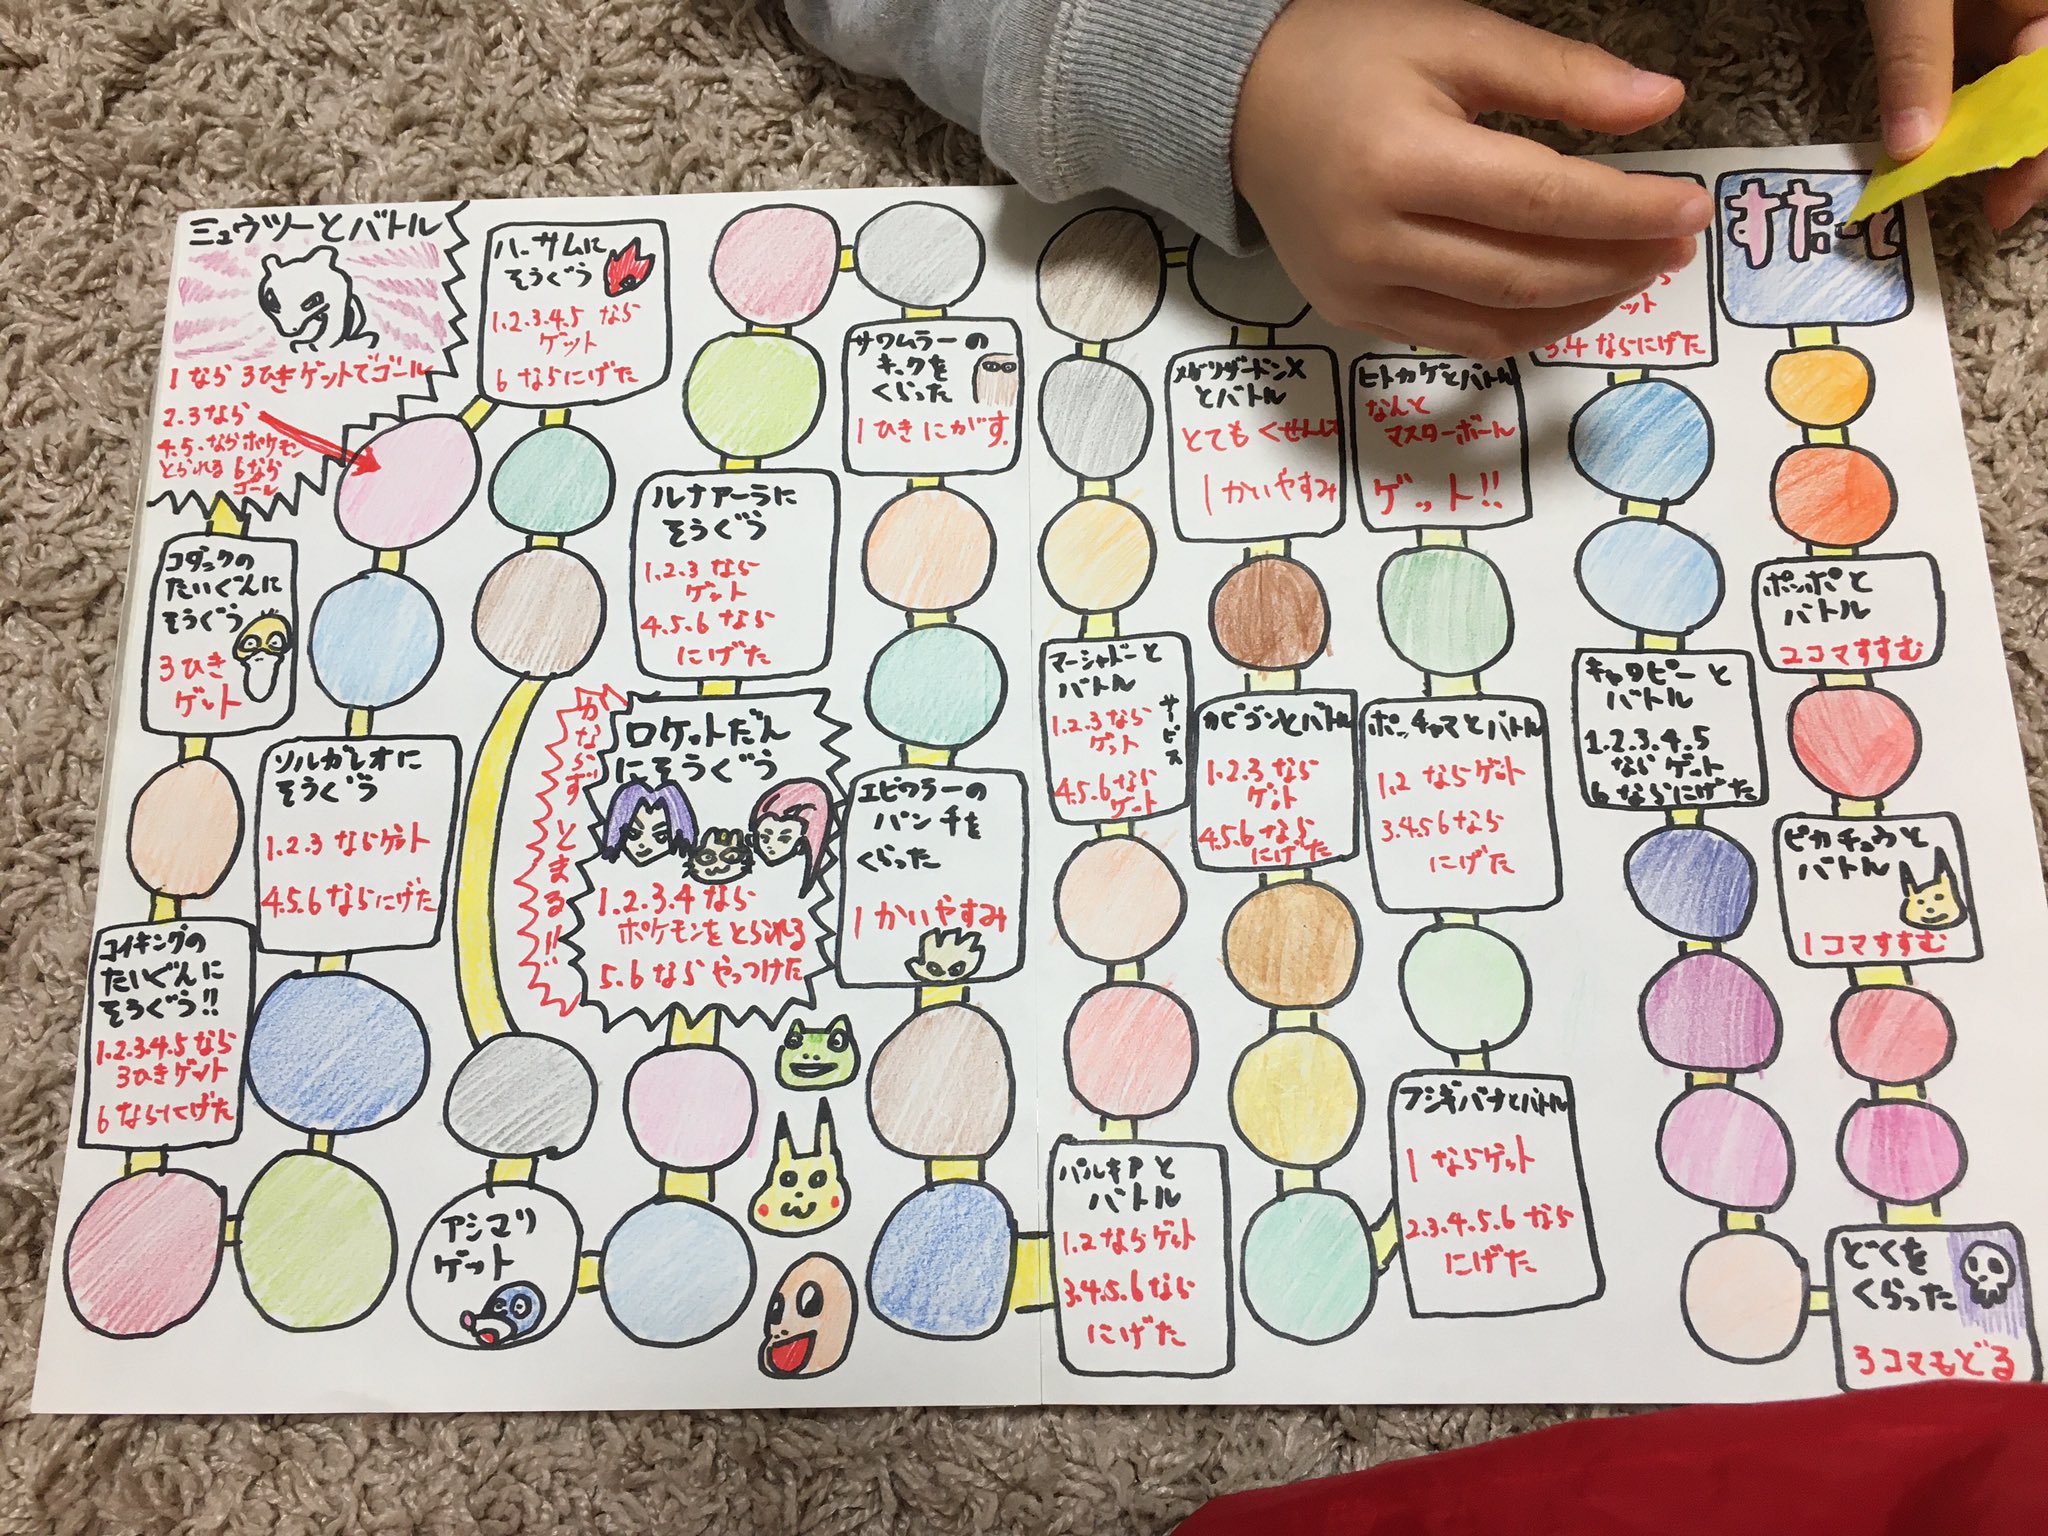 すたーと
ポッポと
バトル
2コマすすむ
ピカチュウと
バトル
1コマすすむ
どくを
くらった
3コマもどる
キャタピーと
バトル
1.2.3.4.5
なら ゲット
6ならにげた
3.4ならにげた
ヒトカゲとバトル
なんと
マスターボール
ゲット!!
ポッチャマとバトル
1.2ならゲット
3.4.5.6なら
にげた
フシギバナとバトル
1ならゲット
2.3.4.5.6なら
にげた
カビゴンとバトル
1.2.3なら
ゲット
4.5.6なら
にげた
メガリザードンX
とバトル
とてもくせんし
1かいやすみ
マーシャドーと
バトル
サービス
1.2.3なら
ゲット
4.5.6なら
ゲット
パルキアと
バトル
1.2ならゲット
3.4.5.6なら
にげた
エビワラーの
パンチを
くらった
1かいやすみ
サワムラーの
キックを
くらった
1ひきにがす.
ルナアーラに
そうぐう
1.2.3なら
ゲット
4.5.6なら
にげた
かならずとまる!!
ロケットだん
にそうぐう
1.2.3.4なら
ポケモンをとられる
5.6ならやっつけた
アシマリ
ゲット
ハッサムに
そうぐう
1.2.3.4.5なら
ゲット
6ならにげた
ソルガレオに
そうぐう
1.2.3ならゲット
4.5.6ならにげた
コイキングの
たいぐんに
そうぐう!!
1.2.3.4.5なら
3ひきゲット
6ならにげた
コダックの
たいぐんに
そうぐう
3ひき
ゲット
ミュウツーとバトル
1なら3ひきゲットでゴール
2.3なら
4.5.ならポケモン
とられる 6なら
ゴール